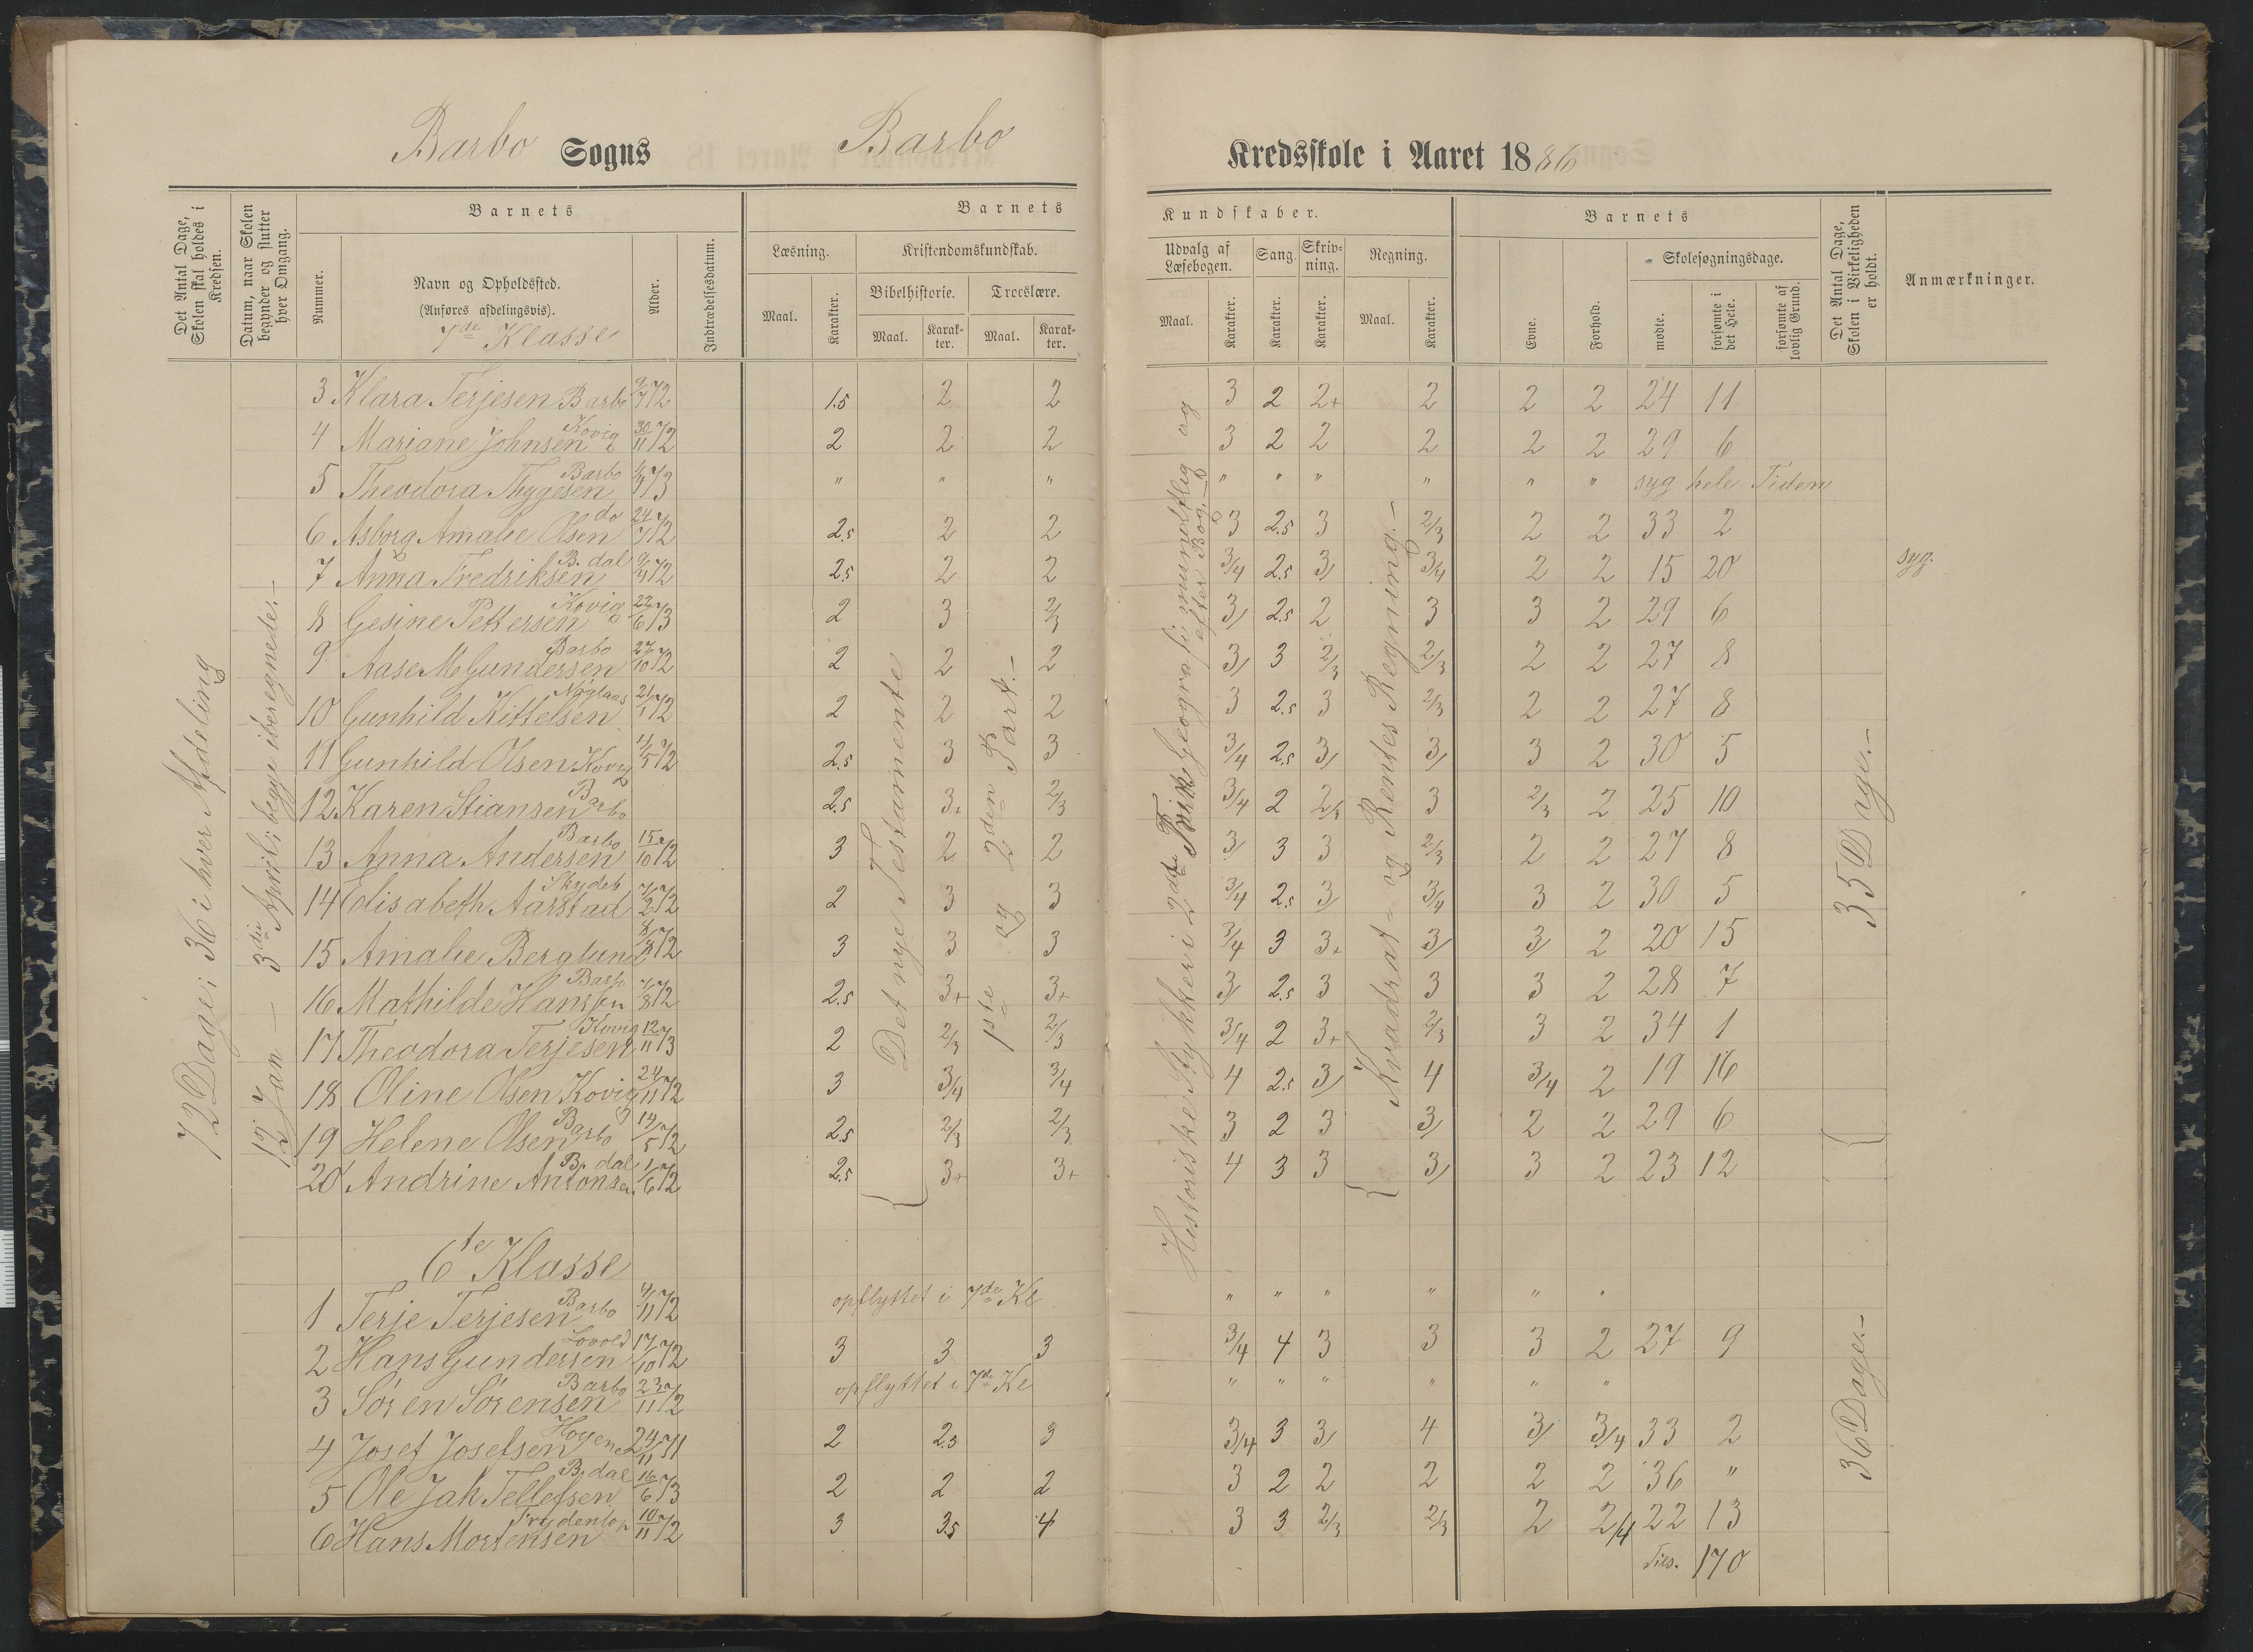 Barbo Sogns Barbo Kredsskole i Aaret 1886
Det Antal Dage, Skolen skal holdes i Kredsen.
Datum, naar Skolen begynder og slutter hver Omgang.
Barnets
Nummer.
Navn og Opholdssted.
(Anføres afdelingsvis).
7de Klasse
Alder.
Indtrædelsesdatum.
Barnets
Læsning.
Maal.
Karakter.
Kristendomskundskab.
Bibelhistorie.
Maal.
Karak-
ter.
Troeslære.
Maal.
Karak-
ter.
Kundskaber.
Udvalg af
Læsebogen.
Maal.
Karakter.
Sang.
Karakter.
Skriv-
ning.
Karakter.
Regning.
Maal.
Karakter.
Barnets
Evne.
Forhold.
Skolesøgningsdage.
mødte.
forsømte i det Hele.
forsømte af lovlig Grund.
Det Antal Dage, Skolen i Virkeligheden er holdt.
Anmærkninger.
72 Dage; 36 i hver Afdeling
12 Jan — 3die April; begge iberegnede. —
Det nye Testamente
1ste og 2den Part. —
Historiske Stykker i 2det Geografi mundtlig og
efter Bog. —
Kvadrat- og Rentes Regning. —
35 Dage. —
3 Klara Terjesen Barbo 9/7 72 1.5 2 2 3 2 2+ 2 2 2 24 11
4 Mariane Johnsen Kovig 30/11 72 2 2 2 3 2 2 2 2 2 29 6
5 Theodora Thygesen Barbo 73 " " " " " " " " " syg hele Tiden
6 Asborg Amalie Olsen do 24/7 72 2.5 2 2 3 2.5 3 2/3 2 2 33 2
7 Anna Fredriksen B. dal 72 2.5 2 2 3/4 2.5 3/ 3/4 2 2 15 20 syg.
8 Gesine Pettersen Kovig 22/6 73 2 3 2/3 3/ 2.5 2 3 3 2 29 6
9 Aase M Gundersen Barbo 27/10 72 2 2 2 3/ 3 2/3 2/3 2 2 27 8
10 Gunhild Kittelsen 21/1 72 2 2 2 3 2.5 3 2/3 2 2 27 8
11 Gunhild Olsen Kovig 72 2.5 3 3 3/4 2.5 3/ 3/ 3 2 30 5
12 Karen Stiansen Barbo 2.5 3+ 2/3 3/4 2 2/3 3 2/3 2 25 10
13 Anna Andersen Barbo 15/10 72 3 2 2 3/ 3 3 2/3 2 2 27 8
14 Elisabeth Aarstad Skydeb 7/2 72 2 3 3 3/4 2.5 3/ 3/4 3 2 30 5
15 Amalie Berglund 72 3 3 3 3/4 3 3+ 3/ 3/ 2 20 15
16 Mathilde Hanssen Barbo 7/8 72 2.5 3+ 3+ 3/ 2.5 3 3 3 2 28 7
17 Theodora Terjesen Kovig 12/11 73 2 2/3 2/3 3/4 2 3+ 2/3 3 2 34 1
18 Oline Olsen Kovig 24/11 72 3 3/4 3/4 4 2.5 3/ 4 3/4 2 19 16
19 Helene Olsen Barbo 19/5 72 2.5 2/3 2/3 3 2 3 3/ 2 2 29 6
20 Andrine Antonsen B. dal 1/6 72 2.5 3+ 3+ 4 3 3 3/ 3 2 23 12
6te Klasse
36 Dage. —
1 Terje Terjesen Barbo 4/11 72 opflyttet i 7de Kl " " " " " "
2 Hans Gundersen Lovold 17/10 72 3 3 3 3/4 4 3 3 3 2 27 9
3 Sören Sörensen Barbo 23/11 72 opflyttet i 7de Kl " " " " " "
4 Josef Josefsen 24/11 71 2 2.5 3 3/4 3 3/ 4 3/ 3/4 33 2
5 Ole Jak Tellefsen B. dal 16/6 73 2 2 2 3 2 2 2 2 2 36 "
6 Hans Mortensen 10/11 72 3 3.5 4 3 3 2/3 2/3 2 2/4 22 13
Tils. 170